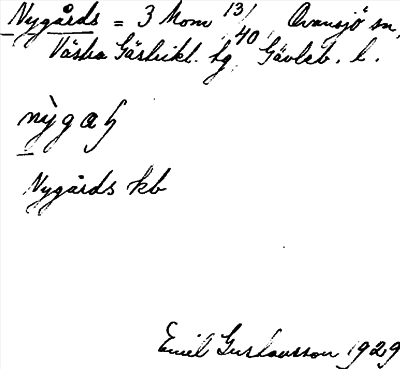 Nygårds = 3 Mom 13/40, Ovansjö sn,
Västra Gästrikl. hg, Gävleb. l.
nỳgaɧ
Nygårds kb
Emil Gustavsson 1929